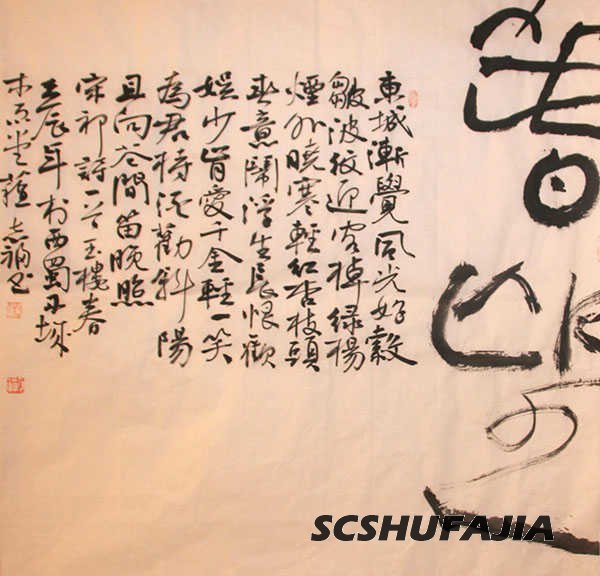 東城漸覺風光好縠
皺波紋迎客棹綠楊
煙外曉寒輕紅杏枝頭
春意鬧浮生長恨歡
娛少肯愛千金輕一笑
為君持酒勸斜陽
且向花間留晚照
宋祁詩一首玉樓春
壬辰年於西蜀
書
SCSHUFAJIA